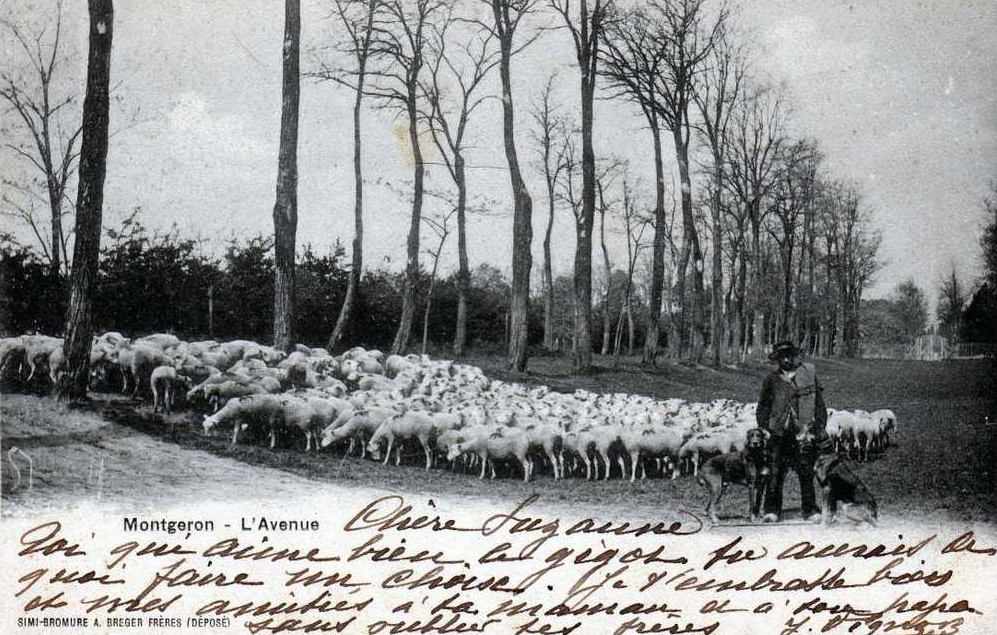 Montgeron - L'Avenue
Chère Suzanne
Toi qui aime bien le gigot tu aurais de
quoi faire un choise. Je t'embrasse bien
et mes amitiés à ta maman et à ton papa
SIMI-BROMURE A. BREGER FRÈRES (DÉPOSÉ)
sans oublier tes frères J.